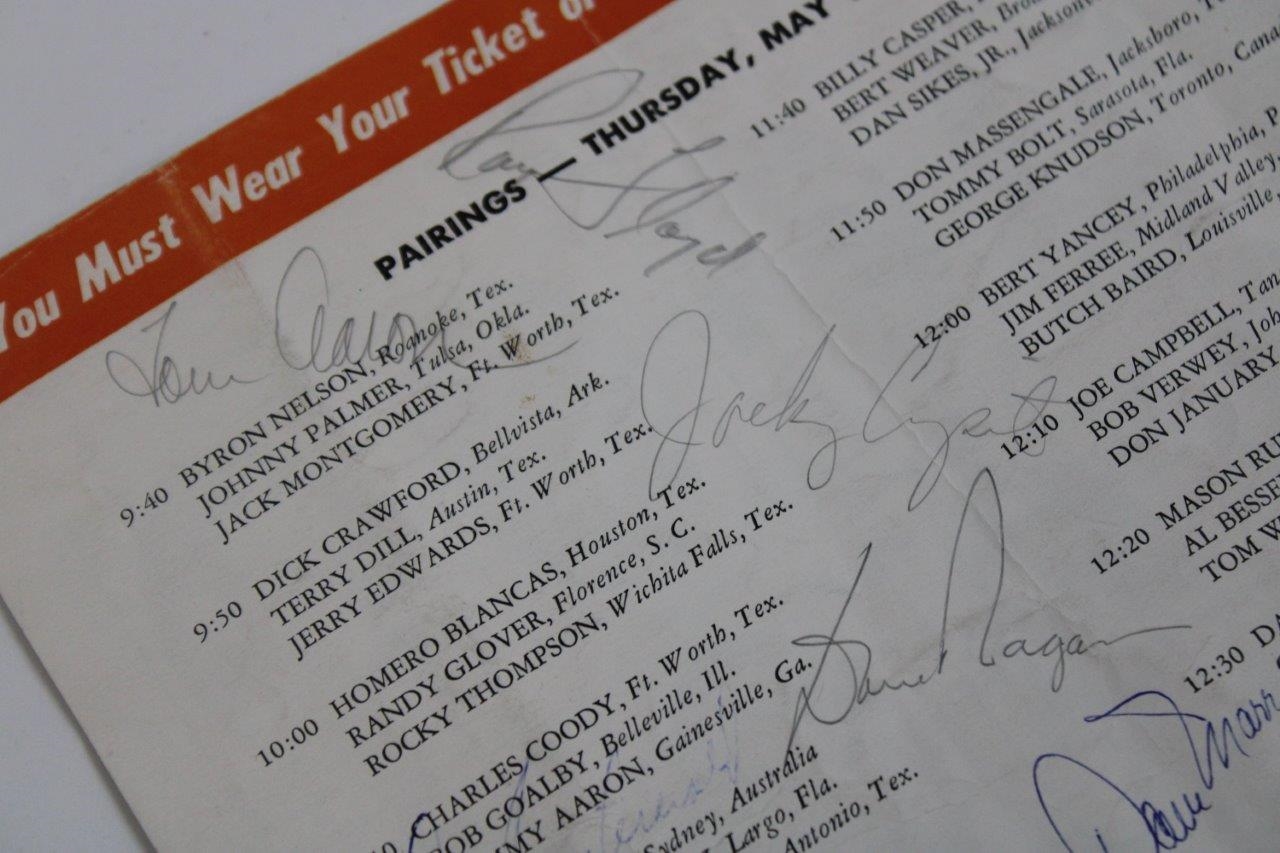 You Must Wear Your Ticket
PAIRINGS — THURSDAY, MAY
Ray Floyd
Tom Aaron
9:40 BYRON NELSON, Roanoke, Tex.
JOHNNY PALMER, Tulsa, Okla.
JACK MONTGOMERY, Ft. Worth, Tex.
9:50 DICK CRAWFORD, Bellvista, Ark.
TERRY DILL, Austin, Tex.
JERRY EDWARDS, Ft. Worth, Tex.
Jacky Cupit
10:00 HOMERO BLANCAS, Houston, Tex.
RANDY GLOVER, Florence, S. C.
ROCKY THOMPSON, Wichita Falls, Tex.
Dave Ragan
CHARLES COODY, Ft. Worth, Tex.
BOB GOALBY, Belleville, Ill.
AARON, Gainesville, Ga.
Sydney, Australia
Largo, Fla.
Antonio, Tex.
11:40 BILLY CASPER,
BERT WEAVER,
DAN SIKES, JR., Jacksonv
11:50 DON MASSENGALE, Jacksboro,
TOMMY BOLT, Sarasota, Fla.
GEORGE KNUDSON, Toronto, Cana
12:00 BERT YANCEY, Philadelphia, P
JIM FERREE, Midland Valley,
BUTCH BAIRD, Louisville
12:10 JOE CAMPBELL,
BOB VERWEY,
DON JANUARY
12:20 MASON RU
AL BESSE
TOM W
12:30 DA
Dave Marr